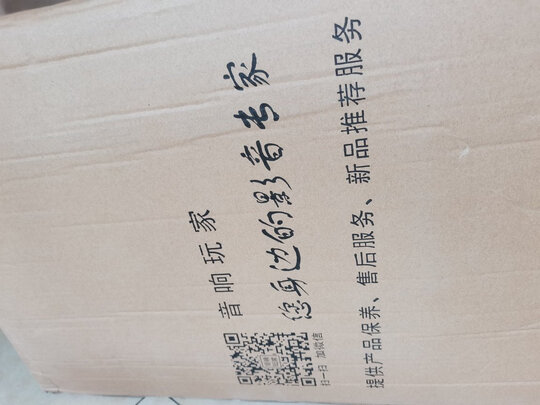 音响玩家
您身边的影音专家
扫一扫 加微信
提供产品保养、售后服务、新品推荐服务